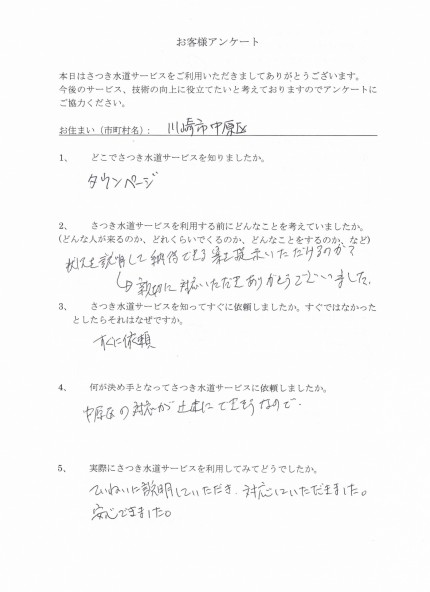 お客様アンケート
本日はさつき水道サービスをご利用いただきましてありがとうございます。
今後のサービス、技術の向上に役立てたいと考えておりますのでアンケートに
ご協力ください。
お住まい（市町村名）： 川崎市中原区
1、 どこでさつき水道サービスを知りましたか。
タウンページ
2、 さつき水道サービスを利用する前にどんなことを考えていましたか。
(どんな人が来るのか、どれくらいでくるのか、どんなことをするのか、など)
状況を説明して納得できる案を提示いただけるのか?
↳親切に対応いただきありがとうございました。
3、 さつき水道サービスを知ってすぐに依頼しましたか。すぐではなかった
としたらそれはなぜですか。
すぐに依頼
4、 何が決め手となってさつき水道サービスに依頼しましたか。
中原区の対応が できそうなので.
5、 実際にさつき水道サービスを利用してみてどうでしたか。
ていねいに説明していただき、対応していただきました。
安心できました。